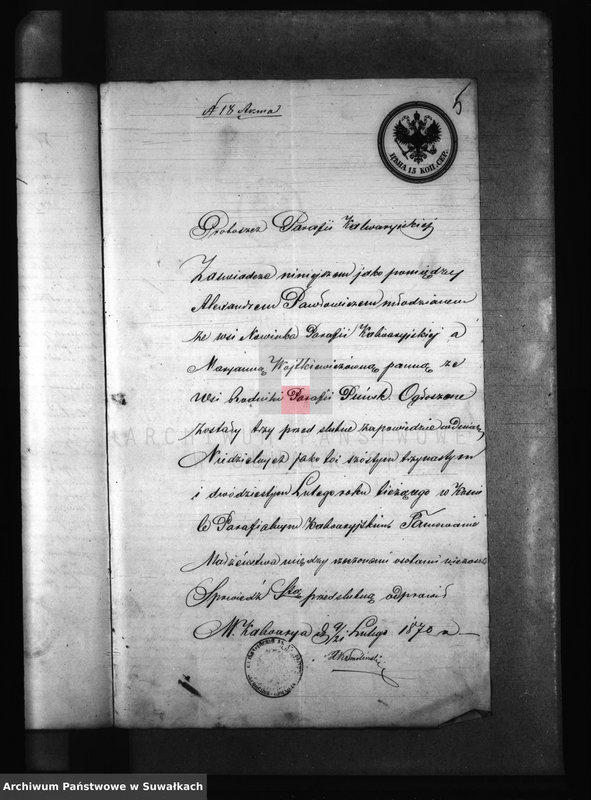 5
N 18 Akma
ЦѢНА 15 КОП. СЕР.
Proboszcz Parafii Kalwaryiskiéj
Zaświadcza niniejszem jako pomiędzy
Alexandrem Pawłowiczem młodzianem
ze wsi Nowinka Parafii Kalwaryjskiej a
Maryanną Wojtkiewiczówną panną ze
wsi Parafii Puńsk. Ogłoszone
zostały trzy przed ślubne zapowiedzie w dni
Niedzielnych jako to: szóstym trzynastym
i dwódziestym Lutego roku bieżącego w Kości
le Parafialnym Kalwaryjskim Tamowania
Małżeństwa między rzeczonemi osobami
Spowiedź Stą przedślubną odprawił
M. Kalwarya d. 9/21 Lutego 1870 r.
ARCHIWUM PAŃSTWOWE
Archiwum Państwowe w Suwałkach